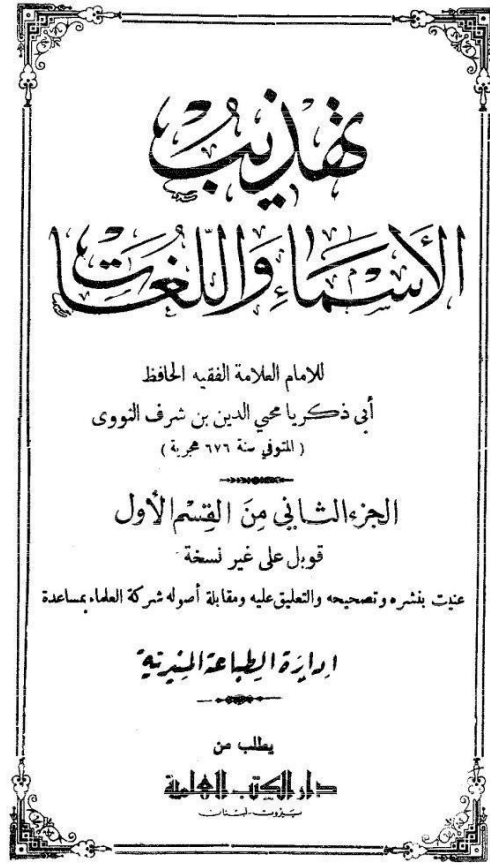 تهذيب
الأسماء واللغات
للامام العلامة الفقيه الحافظ
أبي ذكريا محيي الدين بن شرف النووى
( المتوفي سنة ٦٧٦ هجرية )
الجزء الثاني مِنَ القِسْم الأول
قوبل على غير نسخة
عنيت بنشره وتصحيحه والتعليق عليه ومقابلة أصوله شركة العلماء بمساعدة
إدارة الطباعة المنيرية
يطلب من
دار الكتب العلمية
بيروت - لبنان